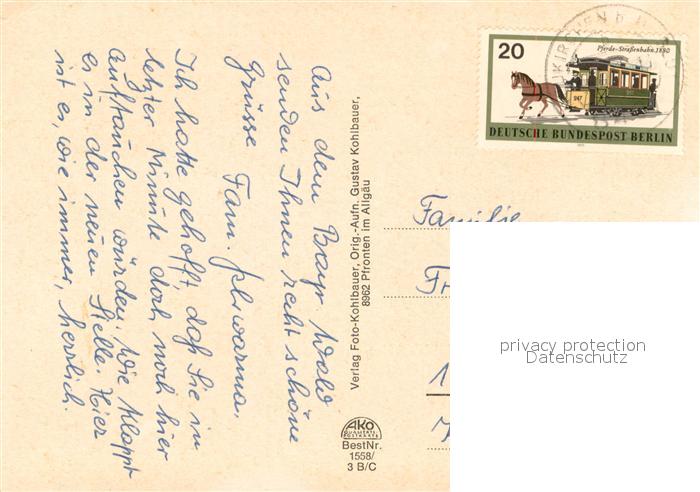 Aus dem Bayr. Wald
senden Ihnen recht schöne
Grüsse Fam.
Ich hatte gehofft, daß Sie in
letzter Minute doch noch hier
auftauchen würden. Wie klappt
es in der neuen Stelle. Hier
ist es, wie immer, herrlich.
Verlag Foto-Kohlbauer, Orig.-Aufn. Gustav Kohlbauer,
8962 Pfronten im Allgäu
AKO
QUALITÄTS
POSTKARTE
BestNr.
1558/
3 B/C
20
Pferde-Straßenbahn 1880
DEUTSCHE BUNDESPOST BERLIN
Familie
privacy protection
Datenschutz